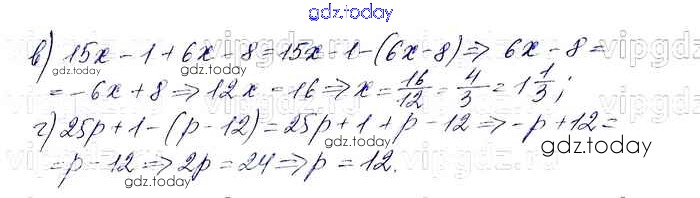 gdz.today
в) 15x - 1 + 6x - 8 = 15x - 1 - (6x - 8) ⇒ 6x - 8 =
gdz.today
gdz.today
= -6x + 8 ⇒ 12x = 16 ⇒ x = 16/12 = 4/3 = 1 1/3;
г) 25p + 1 - (p - 12) = 25p + 1 + p - 12 ⇒ -p + 12 =
gdz.today
= p - 12 ⇒ 2p = 24 ⇒ p = 12.
gdz.today